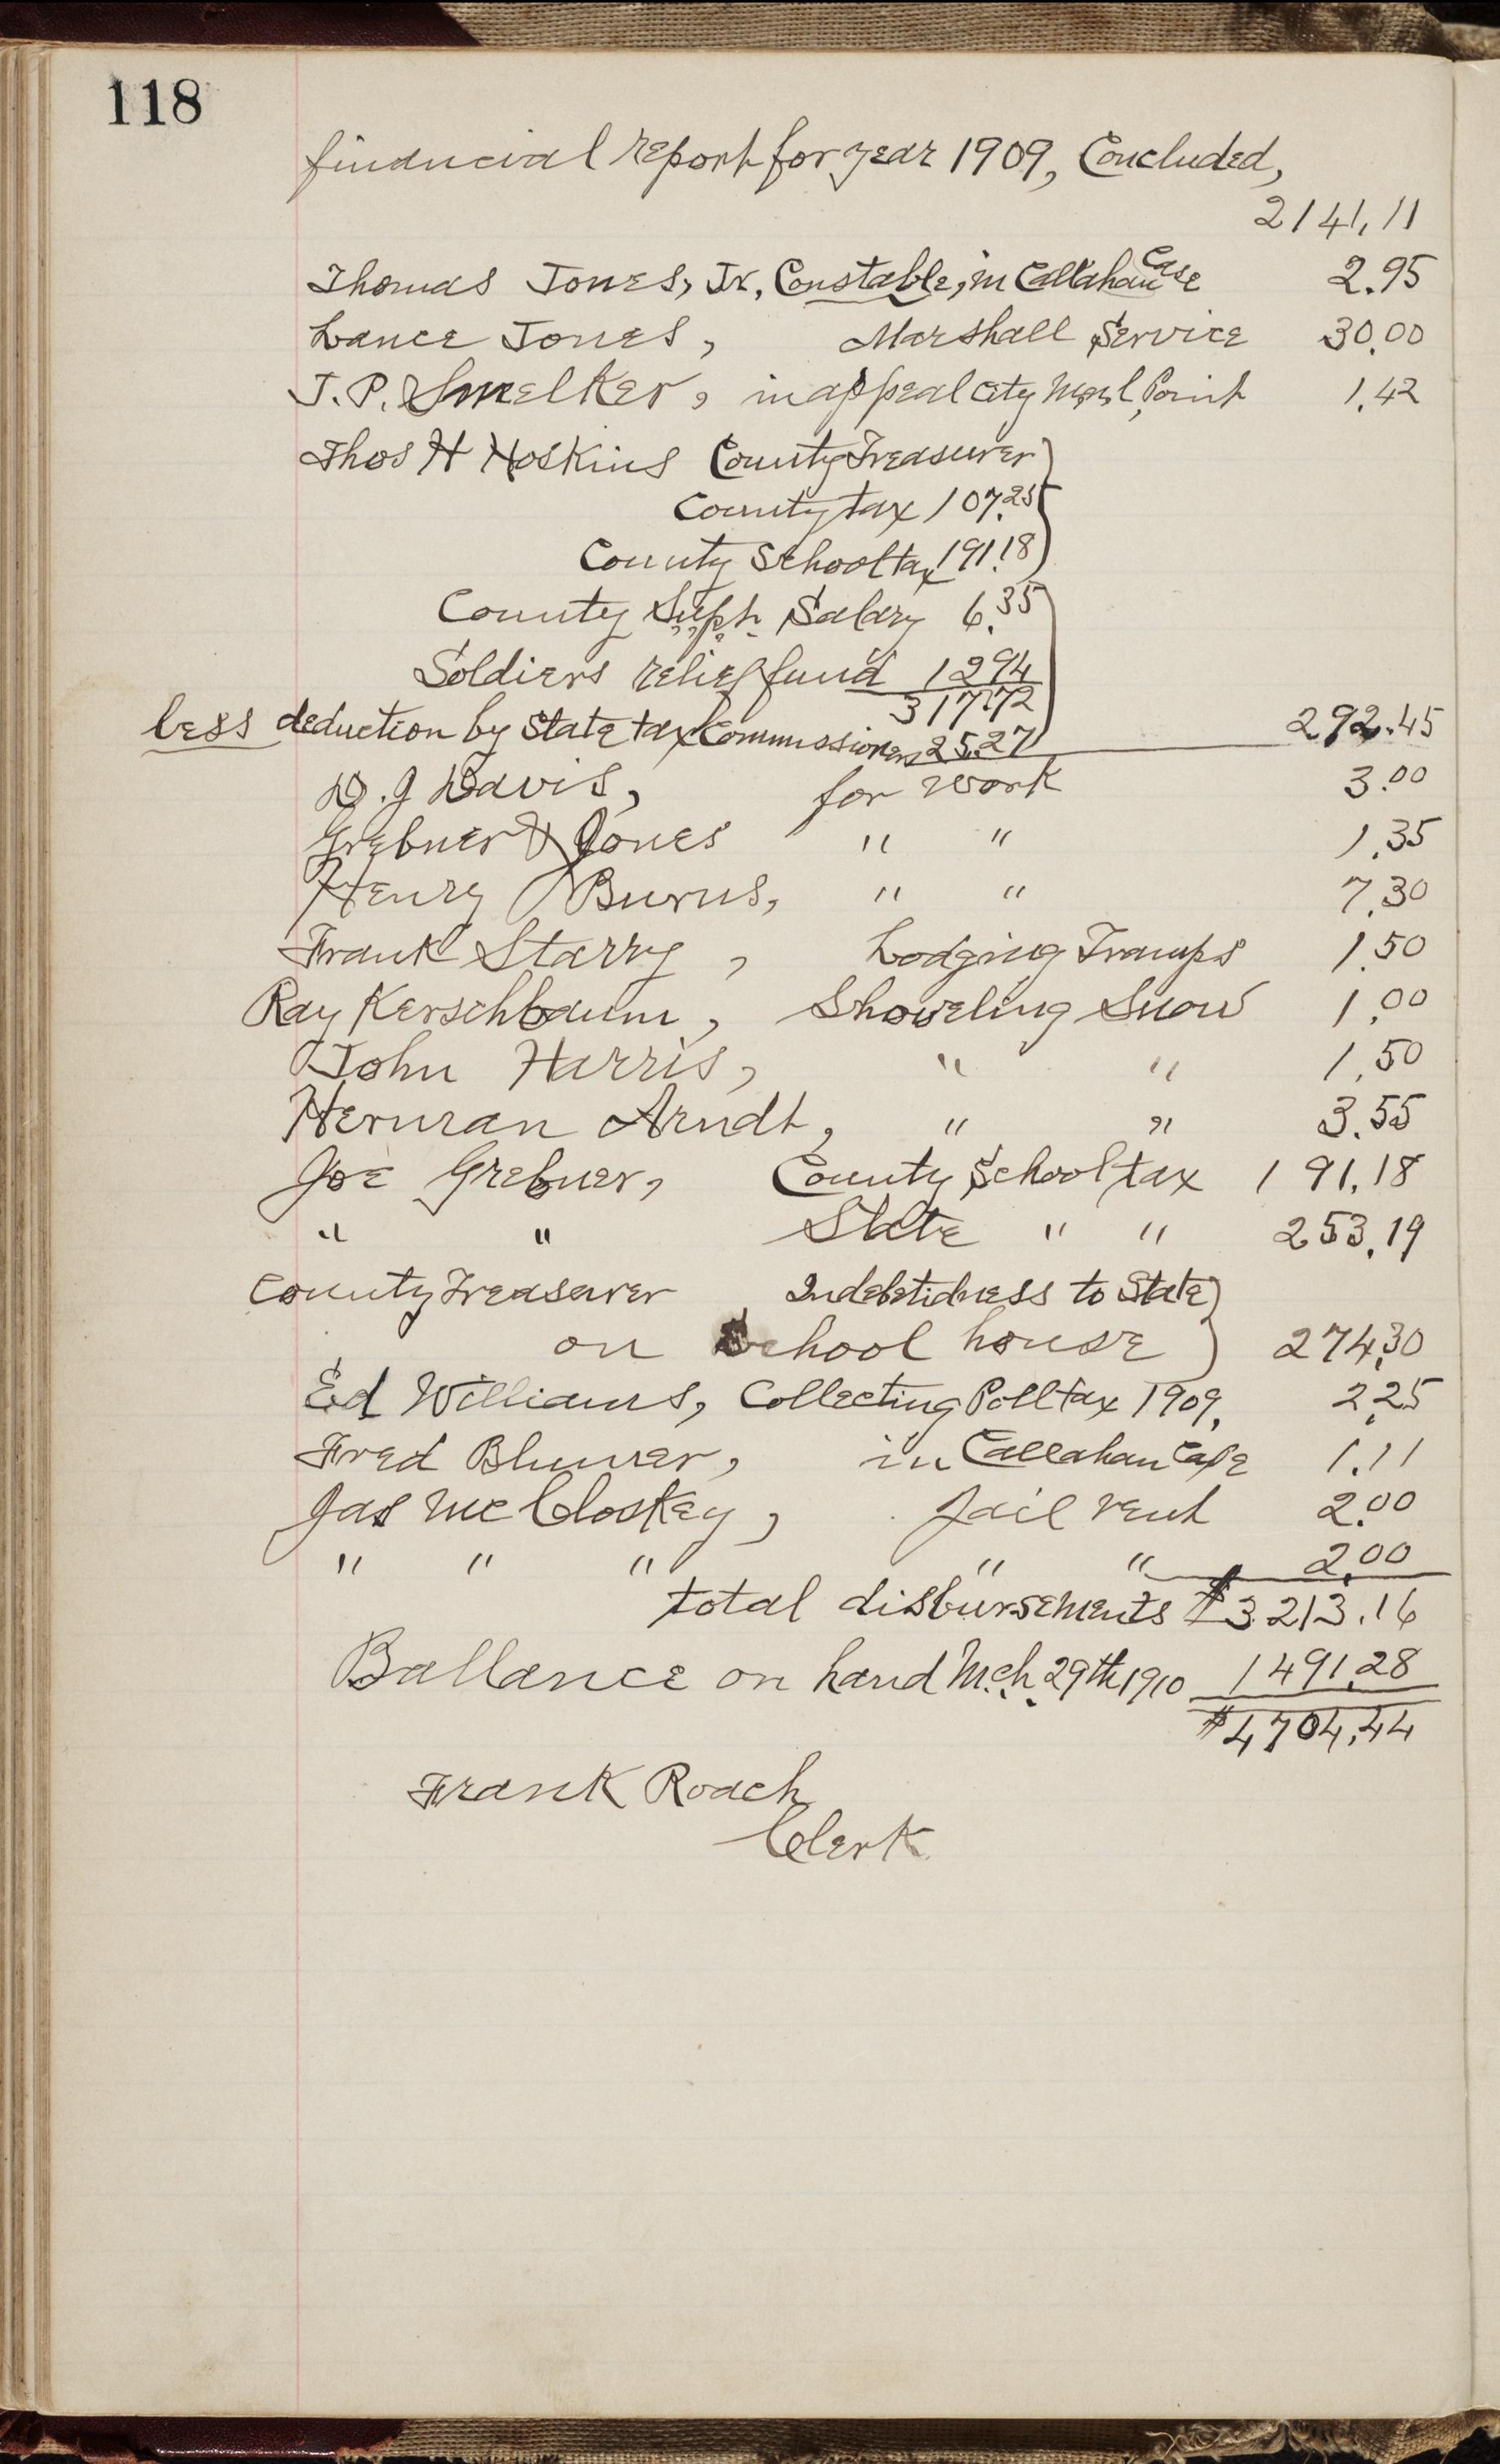 118
financial report for year 1909, Concluded,
2141.11
Thomas Jones, Jr, Constable, in Callahan Case 2.95
Lance Jones, Marshall Service 30.00
J. P. Smelker, in appeal City Mnrl Point 1.42
Thos H Hoskins County Treasurer
County tax 107.25
County School tax 191.18
County Supt. Salary 6.35
Soldiers relief fund 1294
317.72
less deduction by State tax Commissioners 25.27 292.45
D. J Davis, for work 3.00
Grebner & Jones " " 1.35
Henry Burns, " " 7.30
Frank Starry, Lodging Tramps 1.50
Ray Kerschbaum, Shoveling Snow 1.00
John Harris, " " 1.50
Herman Arndt, " " 3.55
Joe Grebner, County School tax 191.18
" " State " " 253.19
County Treasurer Indebetidness to State
on School house 274.30
Ed Williams, Collecting Poll tax 1909. 2.25
Fred Bhumer, in Callahan Case 1.11
Jas Mc Closkey, Jail rent 2.00
" " " " " 2.00
total disbursements $3213.16
Ballance on hand Mch. 29th 1910 1491.28
$4704.44
Frank Roach
Clerk